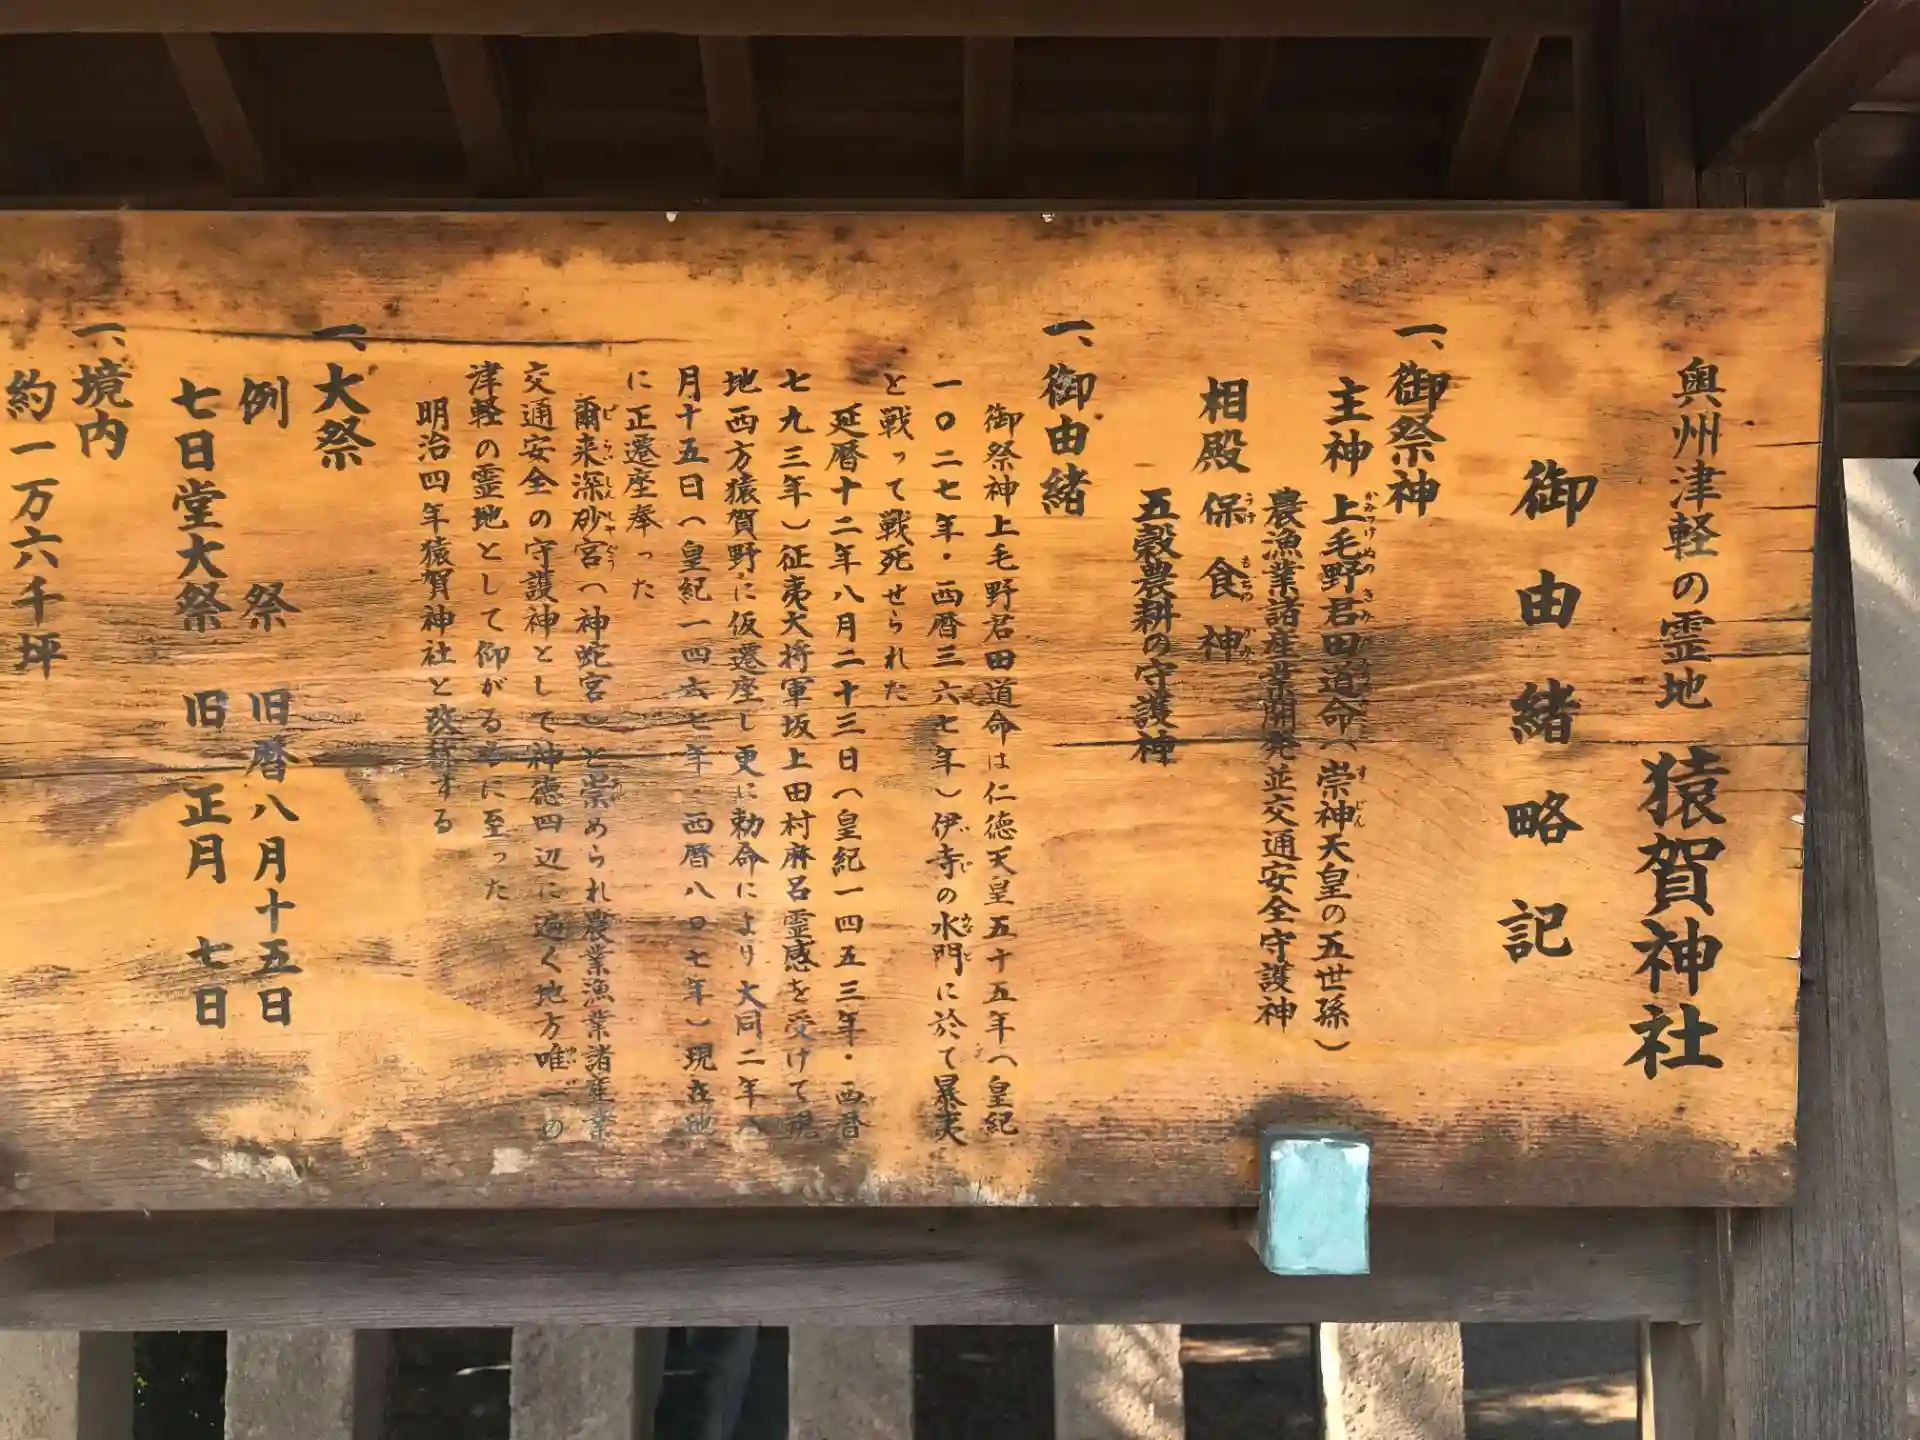 奥州津軽の霊地 猿賀神社
御由緒略記
一、御祭神
主神 上毛野君田道命(崇神天皇の五世孫)
農漁業諸産業開発並交通安全守護神
相殿 保食神
五穀農耕の守護神
一、御由緒
御祭神上毛野君田道命は仁徳天皇五十五年(皇紀
一〇二七年・西暦三六七年)伊寺の水門に於て暴夷
と戦って戦死せられた
延暦十二年八月二十三日(皇紀一四五三年・西暦
七九三年)征夷大将軍坂上田村麻呂霊感を受けて現
地西方猿賀野に仮遷座し更に勅命により大同二年八
月十五日(皇紀一四六七年・西暦八〇七年)現在地
に正遷座奉った
爾来深砂宮(神蛇宮)と崇められ農業漁業諸産業
交通安全の守護神として神徳四辺に遍く地方唯一の
津軽の霊地として仰がるるに至った
明治四年猿賀神社と改称する
一、大祭
例祭 旧暦八月十五日
七日堂大祭 旧正月七日
一、境内
約一万六千坪